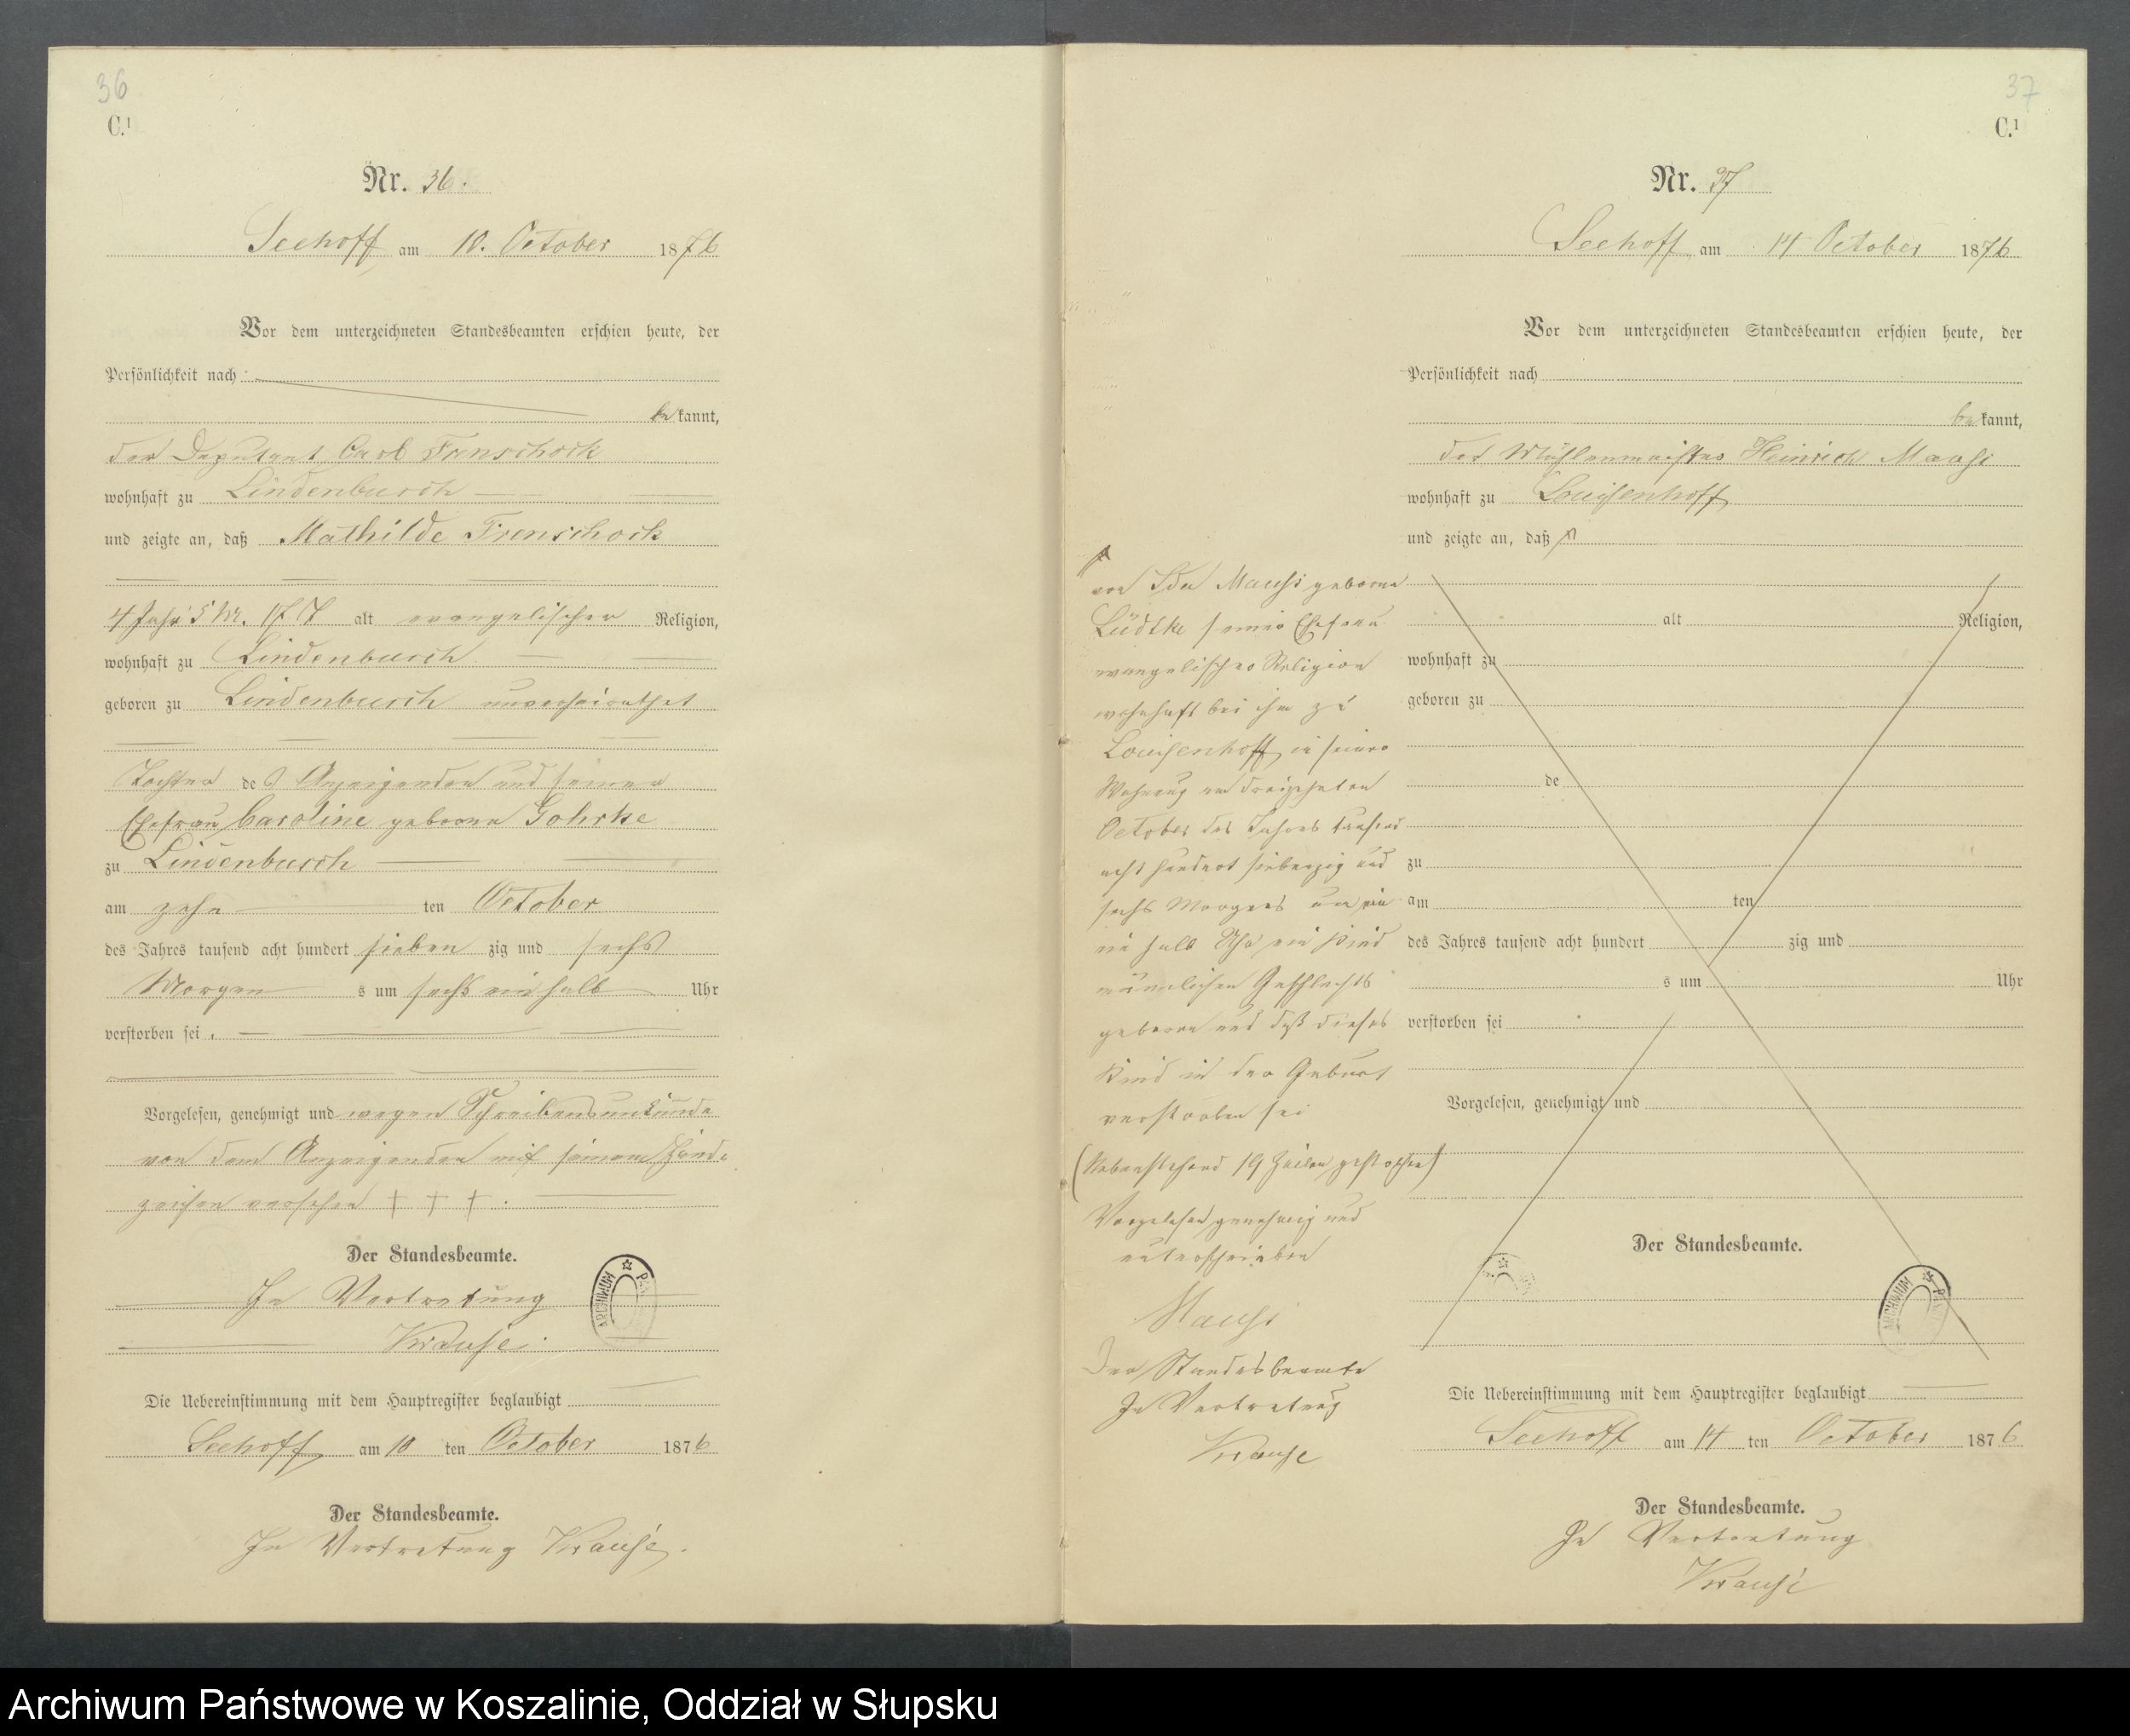 36
C.¹
Nr. 36.
Seehoff am 10. October 1876
Vor dem unterzeichneten Standesbeamten erschien heute, der
Persönlichkeit nach
bekannt,
der Deputant Carl Frenschock
wohnhaft zu Lindenbusch
und zeigte an, daß Mathilde Frenschock
4 Jahr 5 M. 17 T alt evangelischer Religion,
wohnhaft zu Lindenbusch
geboren zu Lindenbusch unverheirathet
Tochter des Anzeigenden und seiner
Ehefrau Caroline geborne Gohrke
zu Lindenbusch
am zehn ten October
des Jahres tausend acht hundert sieben zig und sechs
Morgen s um sechs ein halb Uhr
verstorben sei.
Vorgelesen, genehmigt und wegen Schreibensunkunde
von dem Anzeigenden mit seinem Hand-
zeichen versehen † † †.
Der Standesbeamte.
In Vertretung
Krause.
ARCHIWUM
Die Uebereinstimmung mit dem Hauptregister beglaubigt
Seehoff am 10 ten October 1876
Der Standesbeamte.
In Vertretung Krause.
37
C.¹
Nr. 37
Seehoff am 14 October 1876
Vor dem unterzeichneten Standesbeamten erschien heute, der
Persönlichkeit nach
bekannt,
der Mühlenmeister Heinrich
wohnhaft zu Louisenhoff
und zeigte an, daß
von Ida geborne
Lüdtke seiner Ehefrau
evangelischer Religion
wohnhaft bei ihm zu
Louisenhoff in seiner
Wohnung am dreizehnten
October des Jahres tausend
acht hundert siebenzig und
sechs Morgens um ein
ein halb Uhr ein Kind
männlichen Geschlechts
geboren und daß dieses
Kind in der Geburt
verstorben sei
(Nebenstehend 19 Zeilen gestrichen)
Vorgelesen genehmigt und
unterschrieben
Der Standesbeamte
In Vertretung
Krause
alt Religion,
wohnhaft zu
geboren zu
de
zu
am ten
des Jahres tausend acht hundert zig und
s um Uhr
verstorben sei
Vorgelesen, genehmigt und
Der Standesbeamte.
ARCHIWUM
Die Uebereinstimmung mit dem Hauptregister beglaubigt
Seehoff am 14 ten October 1876
Der Standesbeamte.
In Vertretung
Krause
Archiwum Państwowe w Koszalinie, Oddział w Słupsku